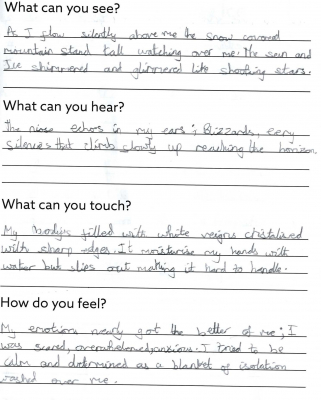 What can you see?
As I flow silently above me the snow covered
mountain stand tall watching over me. The sun and
Ice shimmered and glimmered like shooting stars.
What can you hear?
The noise echos in my ears; Blizzards, eery
silences that climb slowly up reaching the horizon.
What can you touch?
My bodys filled with white veigns christilised
with sharp edges. It moisturise my hands with
water but slips out making it hard to handle.
How do you feel?
My emotions nearly got the better of me; I
was scared, overwhelemed, anxious. I tried to be
calm and determined as a blanket of isolation
washed over me.